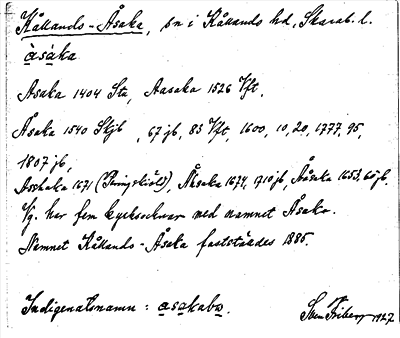 Kållands-Åsaka, sn i Kållands hd, Skarab. l.
àsàka
Asaka 1404 Sta, Aasaka 1526 Vft,
Åsaka 1540 Skjb, 67 jb, 83 Vft, 1600, 10, 20, 1777, 95,
1807 jb,
Asshaka 1671 (Peringskiöld), Åhsaka 1674, 1710 jb, Ååsaka 1653, 60 jb.
Vg. har fem kyrksocknar med namnet Åsaka.
Namnet Kållands-Åsaka fastställdes 1885.
Indigenatsnamn: asakabo.
Sven Friberg 1927